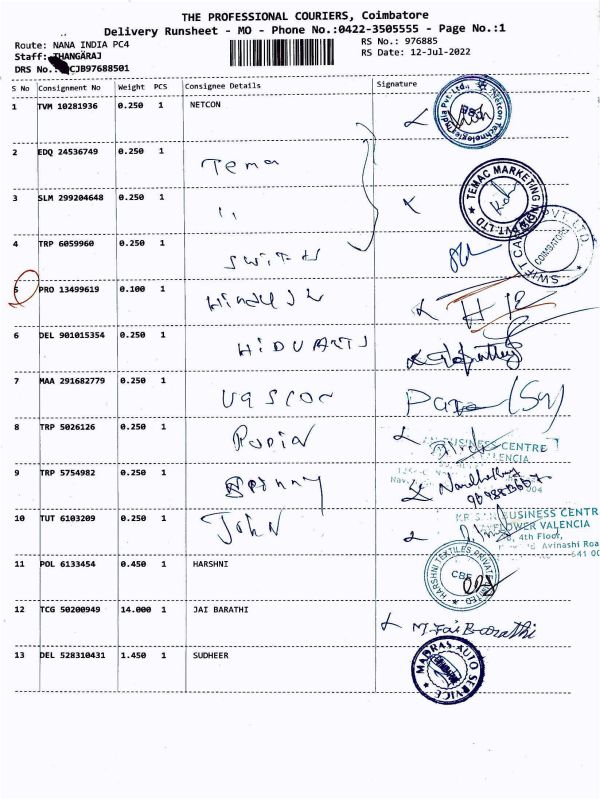 THE PROFESSIONAL COURIERS, Coimbatore
Delivery Runsheet - MO - Phone No.:0422-3505555 - Page No.:1
Route: NANA INDIA PC4 RS No.: 976885
Staff: THANGARAJ RS Date: 12-Jul-2022
DRS No.: CJB97688501
S No Consignment No Weight PCS Consignee Details Signature
1 TVM 10281936 0.250 1 NETCON
Netcon Technologies India Pvt. Ltd.
2 EDQ 24536749 0.250 1 Tema
TEMAC MARKETING PVT. LTD
3 SLM 299204648 0.250 1 ,,
4 TRP 6059960 0.250 1 SWITH
SWIFT PVT. LTD. COIMBATORE
5 PRO 13499619 0.100 1
6 DEL 901015354 0.250 1
7 MAA 291682779 0.250 1 VASCON
8 TRP 5026126 0.250 1
BUSINESS CENTRE
VALENCIA
9 TRP 5754982 0.250 1
004
10 TUT 6103209 0.250 1 John
BUSINESS CENTR
VALENCIA
4th Floor,
Avinashi Roa
641 00
11 POL 6133454 0.450 1 HARSHNI
HARSHNI TEXTILES PRIVATE LIMITED CBE
12 TCG 50200949 14.000 1 JAI BARATHI M. Jai Barathi
13 DEL 528310431 1.450 1 SUDHEER
MADRAS AUTO SERVICE